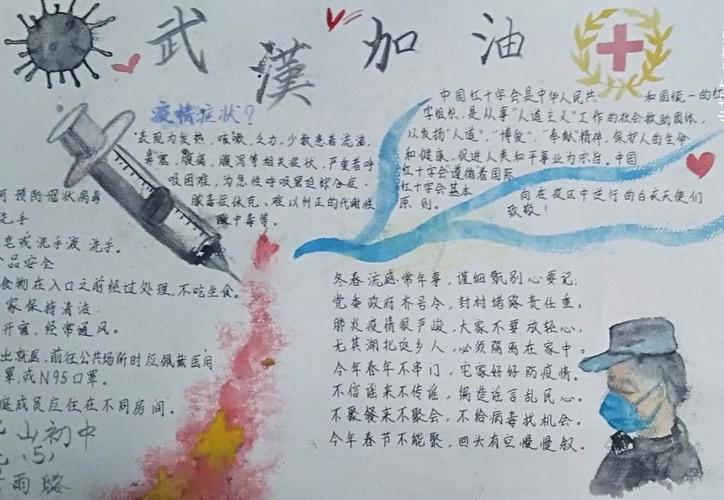 武漢加油
疫情症状？
表现为发热，咳嗽，乏力，少数患者流涕，
鼻塞，腹痛，腹泻等相关症状，严重者呼
吸困难，为急性呼吸窘迫综合症、
脓毒症休克、难以纠正的代谢性
酸中毒等。
中国红十字会是中华人民共和国统一的红
字组织，是从事"人道主义"工作的社会救助团体，
以发扬"人道"，"博爱"，"奉献"精神，保护人的生命
和健康，促进人类和平事业为宗旨。中国
红十字会遵循着国际
红十字会基本
原则。
向在疫区中逆行的白衣天使们
致敬！
可预防冠状病毒
洗手
皂或洗手液 洗手。
品安全
食物在入口之前经过处理，不吃生食。
家保持清洁
开窗，经常通风。
出就医，前往公共场所时应佩戴医用
罩，或N95口罩。
庭成员应住在不同房间。
山初中
(5)
雨璐
冬春流感常年事，谨细甄别心要记；
党委政府齐号令，封村堵路责任重。
肺炎疫情很严峻，大家不要放轻心，
尤其湖北返乡人，必须隔离在家中。
今年春年不串门，宅家好好防疫情。
不信谣来不传谣，编造谣言乱民心。
不聚餐来不聚会，不给病毒找机会。
今年春节不能聚，回头有空慢慢叙。